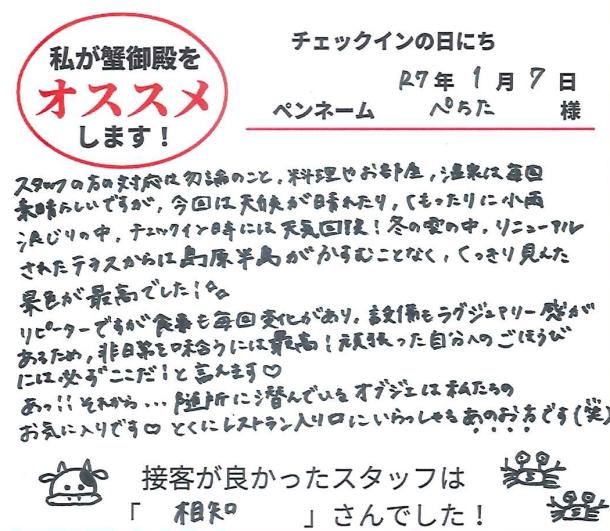 私が蟹御殿を
オススメ
します！
チェックインの日にち
R7年 1月 7日
ペンネーム ぺらた 様
スタッフの方の対応は勿論のこと、料理やお部屋、温泉は毎回
素晴らしいですが、今回は天候が晴れたり、くもったりに小雨
混じりの中、チェックイン時には天気回復！冬の空の中、リニューアル
されたテラスからは島原半島がかすむことなく、くっきり見えた
景色が最高でした！
リピーターですが食事も毎回変化があり、設備もラグジュアリー感が
あるため、非日常を味合うには最高！頑張った自分へのごほうび
には必ず"ここだ！と言えます♡
あっ!! それから… 随所に潜んでいるオブジェは私たちの
お気に入りです♡ とくにレストラン入り口にいらっしゃるあのお方です(笑)
接客が良かったスタッフは
「 相知 」さんでした！